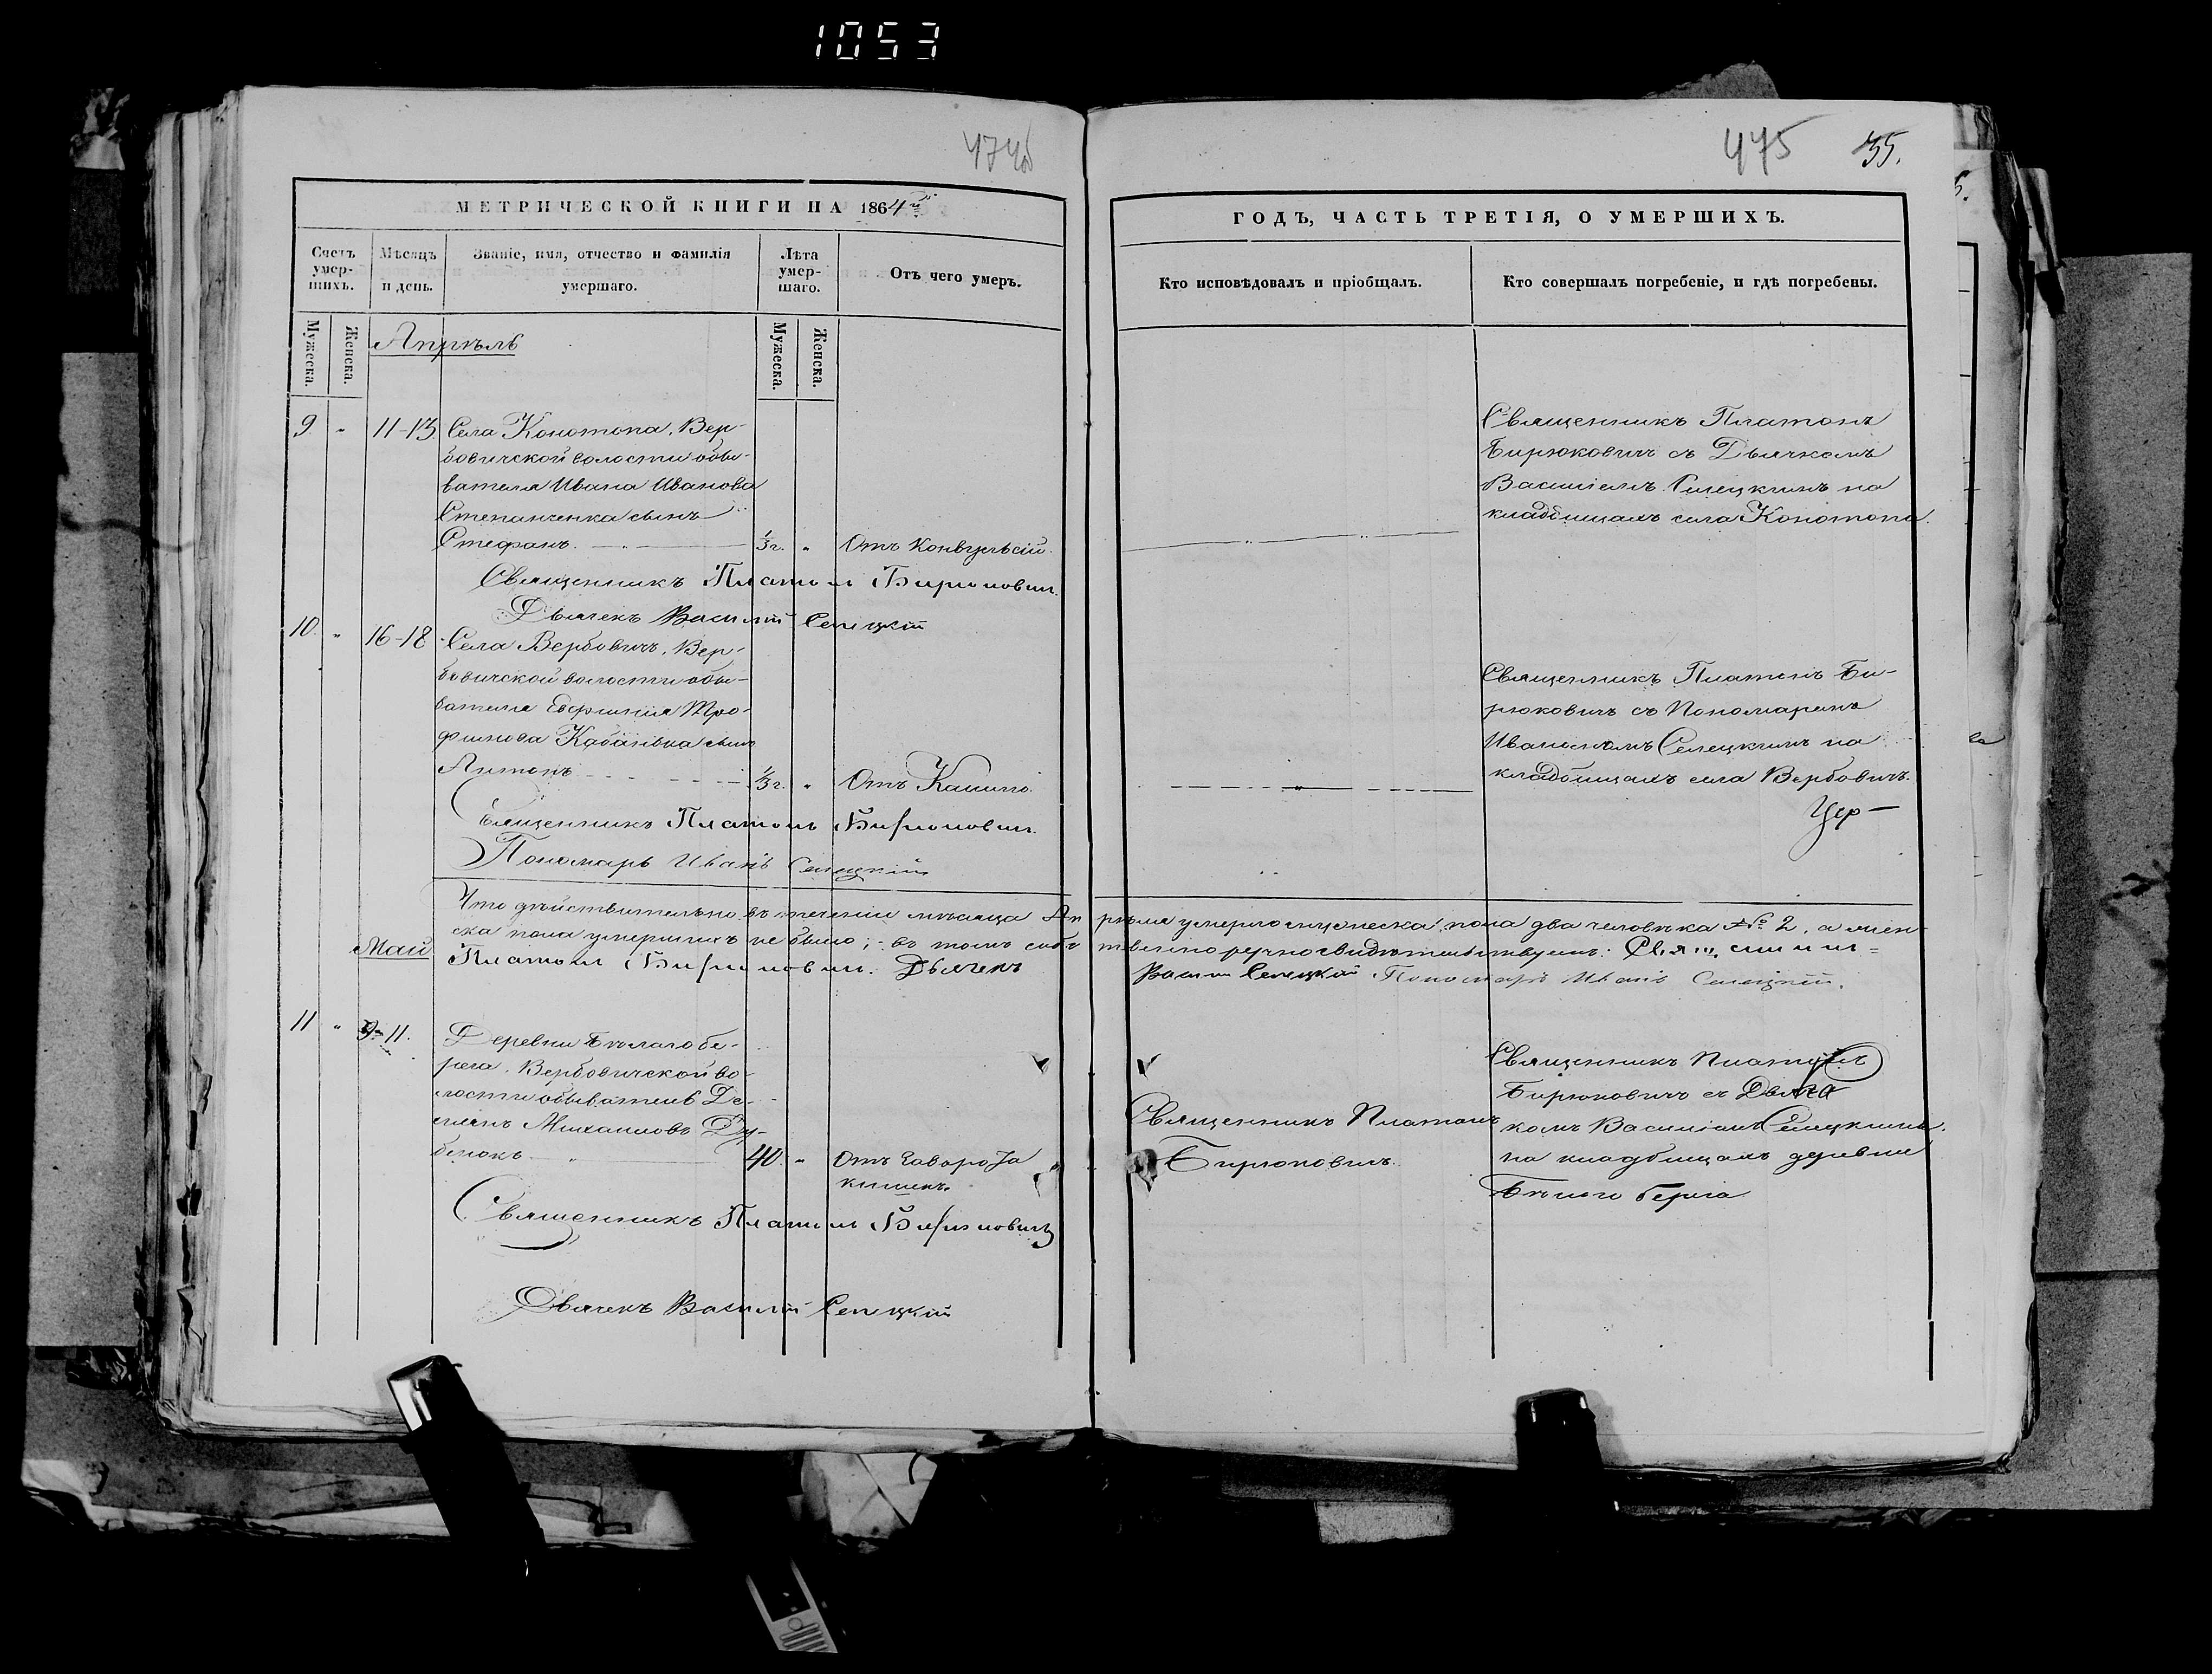 1053
474об
475 35.
МЕТРИЧЕСКОЙ КНИГИ НА 1864й
ГОДЪ, ЧАСТЬ ТРЕТІЯ, О УМЕРШИХЪ.
Счетъ умер-шихъ.
Мужеска. Женска.
Мѣсяцъ и день.
Званіе, имя, отчество и фамилія умершаго.
Лѣта умер-шаго.
Мужеска. Женска.
Отъ чего умеръ.
Кто исповѣдовалъ и пріобщалъ.
Кто совершалъ погребеніе, и гдѣ погребены.
Апрѣль
9. " 11-13. Села Конотопа, Вер-
бовичской волости обы-
вателя Ивана Иванова
Степанченка сынъ
Стефанъ. 1/3 г. " Отъ Конвульсій.
Священникъ Платонъ
Бирюковичъ съ Дьячкомъ
Василіемъ Селецкимъ на
кладбищахъ села Конотопа.
Священникъ Платонъ Бирюковичъ.
Дьячекъ Василій Селецкій
10. " 16-18 Села Вербовичъ, Вер-
бовичской волости обы-
вателя Тро-
фимова сынъ
Антонъ 1/3 г. " Отъ Кашлю.
Священникъ Платонъ Би-
рюковичъ съ Пономаремъ
Иваномъ Селецкимъ на
кладбищахъ села Вербовичъ.
Цер-
Священникъ Платонъ Бирюковичъ.
Пономарь Иванъ Селецкій
Что дѣйствительно въ теченіи мѣсяца Апрѣля умерло мужеска пола два человѣка № 2, а жен-
ска пола умершихъ не было; - въ томъ собственноручно свидѣтельствуемъ: Священникъ
Платонъ Бирюковичъ. Дьячекъ Василій Селецкій Пономарь Иванъ Селецкій.
Май
11 " 9-11. Деревни Бѣлаго бе-
рега, Вербовичской во-
лости обыватель Де-
мьянъ Михаиловъ Ду-
бенокъ 40. " Отъ Заворота
кишекъ.
Священникъ Платонъ
Бирюковичъ.
Священникъ Платонъ
Бирюковичъ съ Дьяч-
комъ Василіемъ Селецкимъ
на кладбищахъ деревни
Бѣлаго берега
Священникъ Платонъ Бирюковичъ
Дьячекъ Василій Селецкій